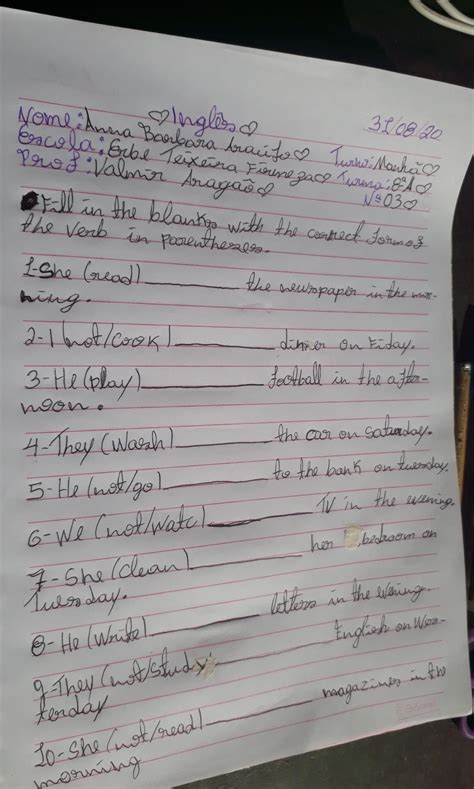 ♡Inglês♡ 31/08/20
Nome: Anna Barbara Araújo♡ Turno: Manhã♡
Escola: Erbe Teixeira Firmeza♡ Turma: 8ªA♡
Prof: Valmir Aragão♡ Nº 03♡
Fill in the blanks with the correct form of
the verb in parentheses.
1-She (read) __________ the newspaper in the mor-
ning.
2-I (not/cook) __________ dinner on Fiday.
3-He (play) __________ football in the after-
noon.
4-They (Wash) __________ the car on saturday.
5-He (not/go) __________ to the bank on tuesday.
6-We (not/watc) __________ TV in the evening.
7-She (clean) __________ her bedroom on
Tuesday.
8-He (Write) __________ letters in the evening.
9-They (not/study __________ English on Wes-
terday
10-She (not/read) __________ magazines in the
morning